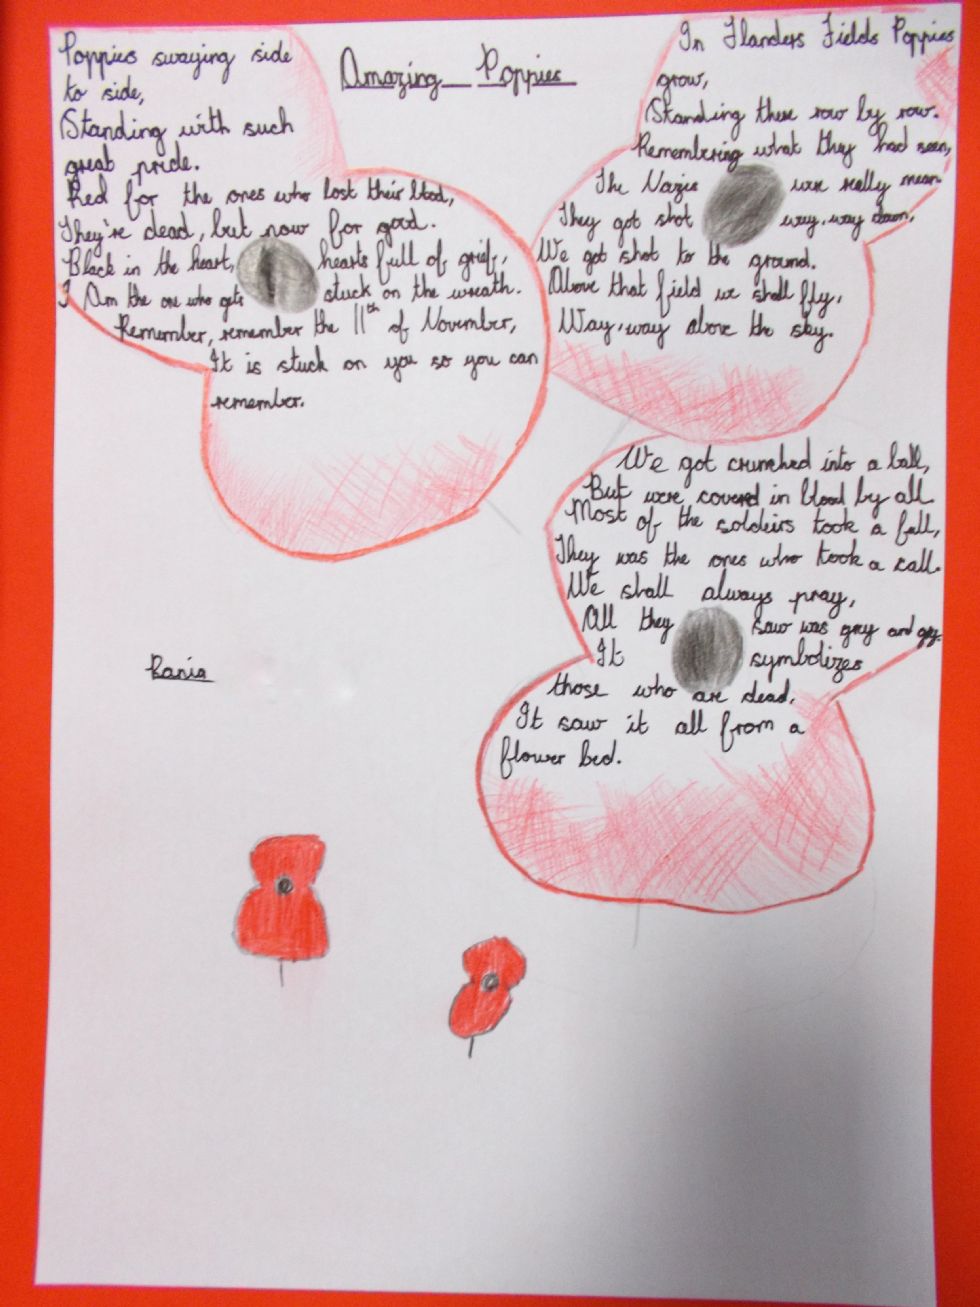 Amazing Poppies
Poppies swaying side
to side,
Standing with such
great pride.
Red for the ones who lost their blood,
They're dead, but now for good.
Black in the heart, hearts full of grief,
I Am the one who gets stuck on the wreath.
Remember, remember the 11th of November,
It is stuck on you so you can
remember.
In Flanders Fields Poppies
grow,
Standing there row by row.
Remembering what they had seen,
The Nazis were really mean
They got shot way, way down,
We got shot to the ground.
Above that field we shall fly,
Way, way above the sky.
We got crunched into a ball,
But were covered in blood by all.
Most of the soldeirs took a fall,
They was the ones who took a call.
We shall always pray,
All they saw was grey and grey.
It symbolizes
those who are dead,
It saw it all from a
flower bed.
Rania